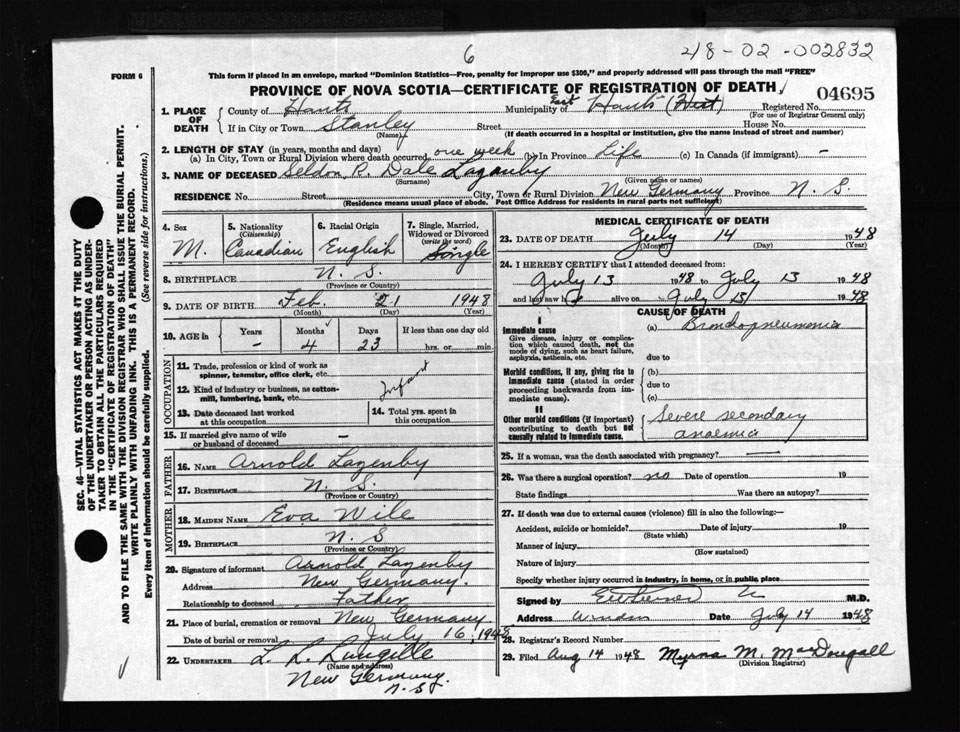 6
48-02-002832
FORM 6
This form if placed in an envelope, marked "Dominion Statistics—Free, penalty for improper use $300," and properly addressed will pass through the mail "FREE"
PROVINCE OF NOVA SCOTIA—CERTIFICATE OF REGISTRATION OF DEATH
04695
1. PLACE OF DEATH
County of Hants Municipality of East Hants (West) Registered No.
(For use of Registrar General only)
If in City or Town Stanley Street House No.
(Name) (If death occurred in a hospital or institution, give the name instead of street and number)
2. LENGTH OF STAY (in years, months and days)
(a) In City, Town or Rural Division where death occurred one week (b) In Province Life (c) In Canada (if immigrant) —
3. NAME OF DECEASED Seldon R. Dale Lazenby
(Surname) (Given name or names)
RESIDENCE No. Street City, Town or Rural Division New Germany Province N. S.
(Residence means usual place of abode. Post Office Address for residents in rural parts not sufficient)
4. Sex M.
5. Nationality (Citizenship) Canadian
6. Racial Origin English
7. Single, Married, Widowed or Divorced (write the word) Single
8. BIRTHPLACE N. S.
(Province or Country)
9. DATE OF BIRTH Feb. 21 1948
(Month) (Day) (Year)
10. AGE in Years — Months 4 Days 23 If less than one day old hrs. or min.
OCCUPATION
11. Trade, profession or kind of work as spinner, teamster, office clerk, etc.
12. Kind of industry or business, as cotton-mill, lumbering, bank, etc.
Infant
13. Date deceased last worked at this occupation
14. Total yrs. spent in this occupation
15. If married give name of wife or husband of deceased —
FATHER
16. NAME Arnold Lazenby
17. BIRTHPLACE N. S.
(Province or Country)
MOTHER
18. MAIDEN NAME Eva Wile
19. BIRTHPLACE N. S
(Province or Country)
20. Signature of informant Arnold Lazenby
Address New Germany.
Relationship to deceased Father
21. Place of burial, cremation or removal New Germany
Date of burial or removal July 16, 1948
22. UNDERTAKER L. L. Rungille
(Name and address)
New Germany.
N. S.
MEDICAL CERTIFICATE OF DEATH
23. DATE OF DEATH July 14 1948
(Month) (Day) (Year)
24. I HEREBY CERTIFY that I attended deceased from:
July 13 1948 to July 13 1948
and last saw h alive on July 13 1948
CAUSE OF DEATH
I
Immediate cause
Give disease, injury or complication which caused death, not the mode of dying, such as heart failure, asphyxia, asthenia, etc.
(a) Bronchopneumonia
due to
Morbid conditions, if any, giving rise to immediate cause (stated in order proceeding backwards from immediate cause).
(b)
due to
(c)
II
Other morbid conditions (if important) contributing to death but not causally related to immediate cause.
Severe secondary
anaemia
25. If a woman, was the death associated with pregnancy? —
26. Was there a surgical operation? no Date of operation 19
State findings Was there an autopsy?
27. If death was due to external causes (violence) fill in also the following:—
Accident, suicide or homicide? Date of injury 19
(State which)
Manner of injury
(How sustained)
Nature of injury
Specify whether injury occurred in industry, in home, or in public place
Signed by M.D.
Address Date July 14 1948
28. Registrar's Record Number
29. Filed Aug 14 1948 Myrna M. MacDougall
(Division Registrar)
SEC. 46—VITAL STATISTICS ACT MAKES IT THE DUTY
OF THE UNDERTAKER OR PERSON ACTING AS UNDER-
TAKER TO OBTAIN ALL THE PARTICULARS REQUIRED
IN THE "CERTIFICATE OF REGISTRATION OF DEATH"
AND TO FILE THE SAME WITH THE DIVISION REGISTRAR WHO SHALL ISSUE THE BURIAL PERMIT.
WRITE PLAINLY WITH UNFADING INK. THIS IS A PERMANENT RECORD.
Every item of information should be carefully supplied. (See reverse side for instructions.)